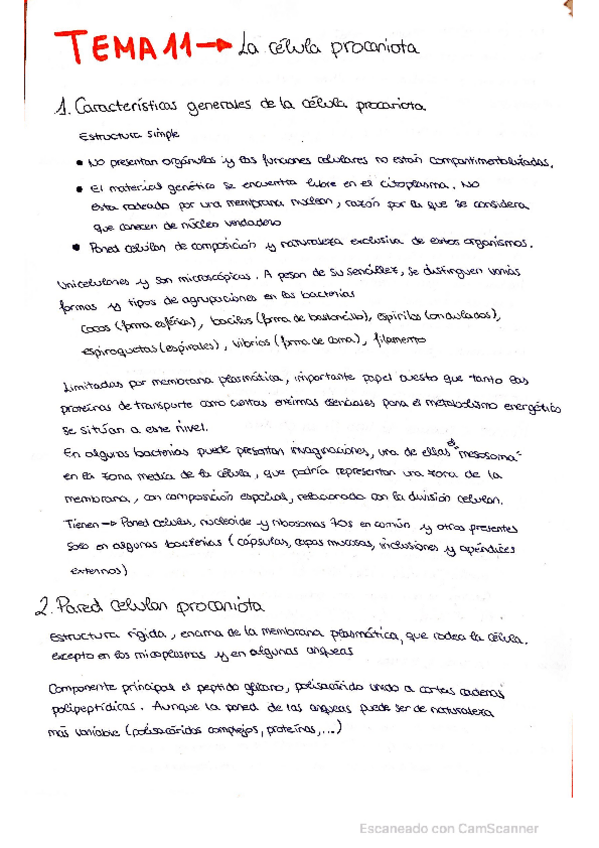 TEMA 11 → La célula procariota
1. Características generales de la célula procariota.
Estructura simple
• No presentan orgánulos y las funciones celulares no están compartimentalizadas.
• El material genético se encuentra libre en el citoplasma. No
esta rodeado por una membrana nuclear, razón por la que se considera
que carecen de núcleo verdadero
• Pared celular de composición y naturaleza exclusiva de estos organismos.
Unicelulares y son microscópicas. A pesar de su sencillez, se distinguen varias
formas y tipos de agrupaciones en las bacterias
cocos (forma esférica), bacilos (forma de bastoncillo), espirilos (ondulados),
espiroquetas (espirales), vibrios (forma de coma), filamento
Limitadas por membrana plasmática, importante papel puesto que tanto las
proteínas de transporte como ciertas enzimas esenciales para el metabolismo energético
se sitúan a este nivel.
En algunas bacterias puede presentar invaginaciones, una de ellas el "mesosoma"
en la zona media de la célula, que podría representar una zona de la
membrana, con composición especial, relacionada con la división celular.
Tienen → Pared celular, nucleoide y ribosomas 70s en común y otros presentes
solo en algunas bacterias (cápsulas, capas mucosas, inclusiones y apéndices
externos)
2. Pared celular procariota
Estructura rígida, encima de la membrana plasmática, que rodea la célula.
excepto en los micoplasmas y en algunas arqueas
Componente principal el peptido glicano, polisacárido unido a cortas cadenas
polipeptídicas. Aunque la pared de las arqueas puede ser de naturaleza
más variable (polisacáridos complejos, proteínas,...)
Escaneado con CamScanner